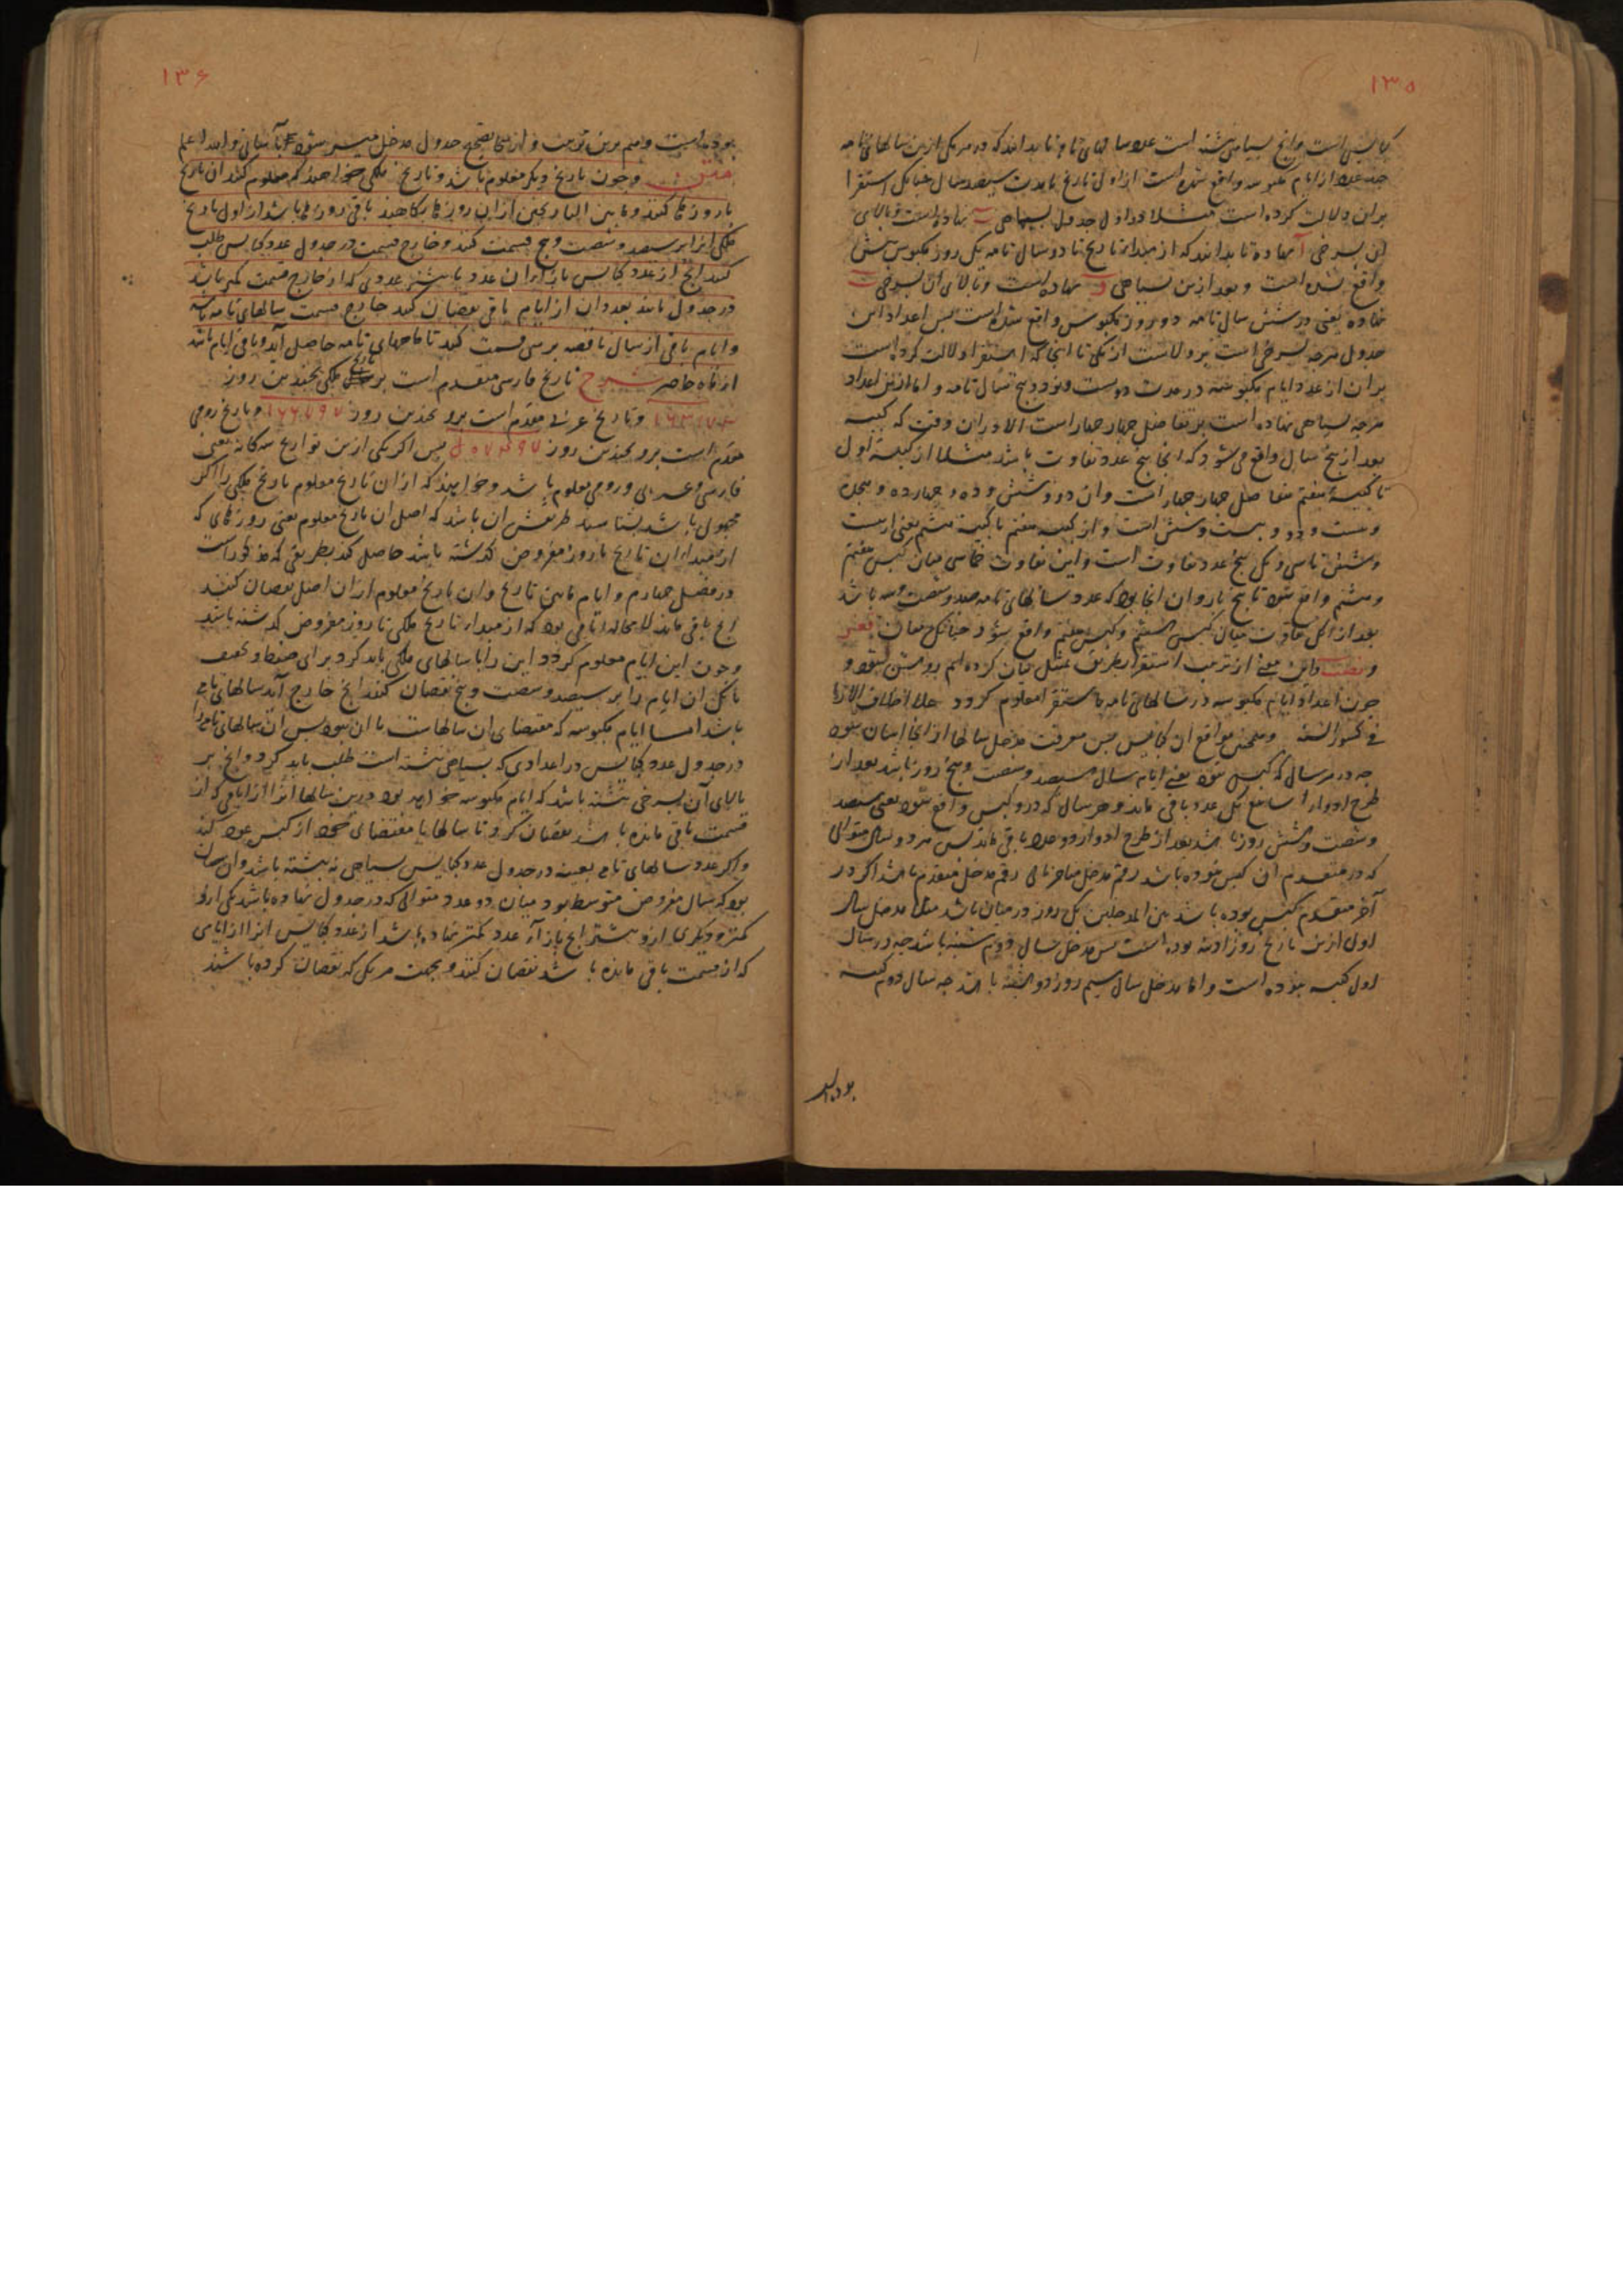 ۱۳۵
کبایس است و انچ بسیاهی نبشته است عدد سالهای تام تا بدانند که در هر یکی ازین سالهای تامه
چند عدد از ایام مکبوسه واقع شده است از اول تاریخ تا مدت سیصد سال چنانک استقرا
بران دلالت کرده است مثلا در اول جدول بسیاهی نهاده است و بالای
آن بسرخی آ نهاده تا بدانند که از مبداء تاریخ تا دو سال تامه یک روز مکبوس بیش
واقع شده است و بعد ازین بسیاهی و نهاده است و بالای آن بسرخی ب
نهاده یعنی در شش سال تامه دو روز مکبوس واقع شده است پس اعداد این
جدول هرچه بسرخی است بر ولاست از یکی تا انجا که استقرا دلالت کرده است
بران از عدد ایام مکبوسه در مدت دویست و نود و پنج سال تامه و اما ازین اعداد
هرچه بسیاهی نهاده است بر تفاضل چهار چهار است الا در ان وقت که کبیسه
بعد از پنج سال واقع می شود که انجا پنج عدد تفاوت باشد مثلا از کبیسه اول
تا کبیسه هفتم تفاضل چهار چهار است و ان دو و شش و ده و چهارده و هجده
و بیست و دو و بیست و شش است و از کبیسه هفتم تا کبیسه هشتم یعنی از بیست
و شش تا سی و یک پنج عدد تفاوت است و این تفاوت خماسی میان کبس هفتم
و هشتم واقع شود تا پنج بار و ان انجا بود که عدد سالهای تامه صد و شصت و سه باشد
بعد از آنکه تفاوت میان کبس هشتم و کبس هفتم واقع شود چنانکه میان
و این معنی از ترتیب استقرا بطریق تمثیل بیان کرده ایم روشن شود و
چون اعداد ایام مکبوسه در سالهای تامه باستقرا معلوم گردد
فی کسور السنة و همچنین مواقع آن کبایس پس معرفت مدخل سالها از انجا اسان شود
چه در هر سال که کبس نبود یعنی ایام سال سیصد و شصت و پنج روز باشد بعد از
طرح ادوار اسابیع یک عدد باقی ماند و هر سال که درو کبس واقع شود یعنی سیصد
و شصت و شش روز باشد بعد از طرح ادوار دو عدد باقی ماند پس هر دو سال متوالی
که در متقدم آن کبس نبوده باشد رقم مدخل متاخر تالی رقم مدخل متقدم باشد اگر در
آخر متقدم کبس بوده باشد بین المدخلین یک روز در میان باشد مثلا مدخل سال
اول ازین تاریخ روز ادینه بوده است پس مدخل سال دوم شنبه باشد چه در سال
اول کبیسه نبوده است و اما مدخل سال سیم روز دوشنبه باشد چه سال دوم کبیسه
بوده است
۱۳۶
بوده است و هم برین ترتیب و ازینجا تصحیح جدول مدخل میسر شود بآسانی و الله اعلم
متن و چون تاریخ دیگر معلوم باشد و تاریخ ملکی خواهند که معلوم کنند آن تاریخ
با روزها کنند و ما بین التاریخین از ان روزها بکاهند باقی روزها باشد از اول تاریخ
ملکی انرا بر سیصد و شصت و پنج قسمت کنند و خارج قسمت در جدول عدد کبایس طلب
کنند انچ از عدد کبایس بازاء ان عدد یا بیشتر عددی که از خارج قسمت کمتر باشد
در جدول یابند بعدد ان از ایام باقی نقصان کنند خارج قسمت سالهای تامه باشد
و ایام باقی از سال ناقصه بر سی قسمت کنند تا ماههای تامه حاصل آید و باقی ایام باشد
از ماه حاضر شرح تاریخ فارسی متقدم است بر تاریخ ملکی بچندین روز
۱۶۳۱۷۳ و تاریخ عربی مقدم است برو بچندین روز ۱۶۶۷۹۷ و تاریخ رومی
مقدم است برو بچندین روز ۵۰۷۴۹۷ پس اگر یکی ازین تواریخ سه گانه یعنی
فارسی و عربی و رومی معلوم باشد و خواهند که از ان تاریخ معلوم تاریخ ملکی را اگر
مجهول باشد بشناسند طریقش ان باشد که اصل ان تاریخ معلوم یعنی روزهای که
از مبداء ان تاریخ تا روز مفروض گذشته باشد حاصل کند بطریقی که مذکور است
در فصل چهارم و ایام مابین تاریخ و ان تاریخ معلوم از ان اصل نقصان کنند
انچ باقی ماند لامحاله ایامی بود که از مبداء تاریخ ملکی تا روز مفروض گذشته باشد
و چون این ایام معلوم گردد این را با سالهای ملکی باید کرد برای ضبط و تخفیف
بآنکه ان ایام را بر سیصد و شصت و پنج نقصان کنند انچ خارج آید سالهای تامه
باشد اما ایام مکبوسه که مقتضای ان سالهاست با ان بود پس ان سالهای تامه را
در جدول عدد کبایس در اعدادی که بسیاهی نبشته است طلب باید کرد و انچ بر
بالای آن بسرخی نبشته باشد که ایام مکبوسه خواهد بود درین سالها انرا از ایامی که از
قسمت باقی مانده باشد نقصان کرد تا سالها با مقتضای خود از کبس عود کند
و اگر عدد سالهای تامه بعینه در جدول عدد کبایس بسیاهی نه نبشته باشد و ان چنان
بود که سال مفروض متوسط بود میان دو عدد متوالی که در جدول نهاده باشد یکی ازو
کمتر و دیگری ازو بیشتر انچ بازاء عدد کمتر نهاده باشد از عدد کبایس انرا از ایامی
که از قسمت باقی مانده باشد نقصان کنند و بجهت هر یکی که نقصان کرده باشند